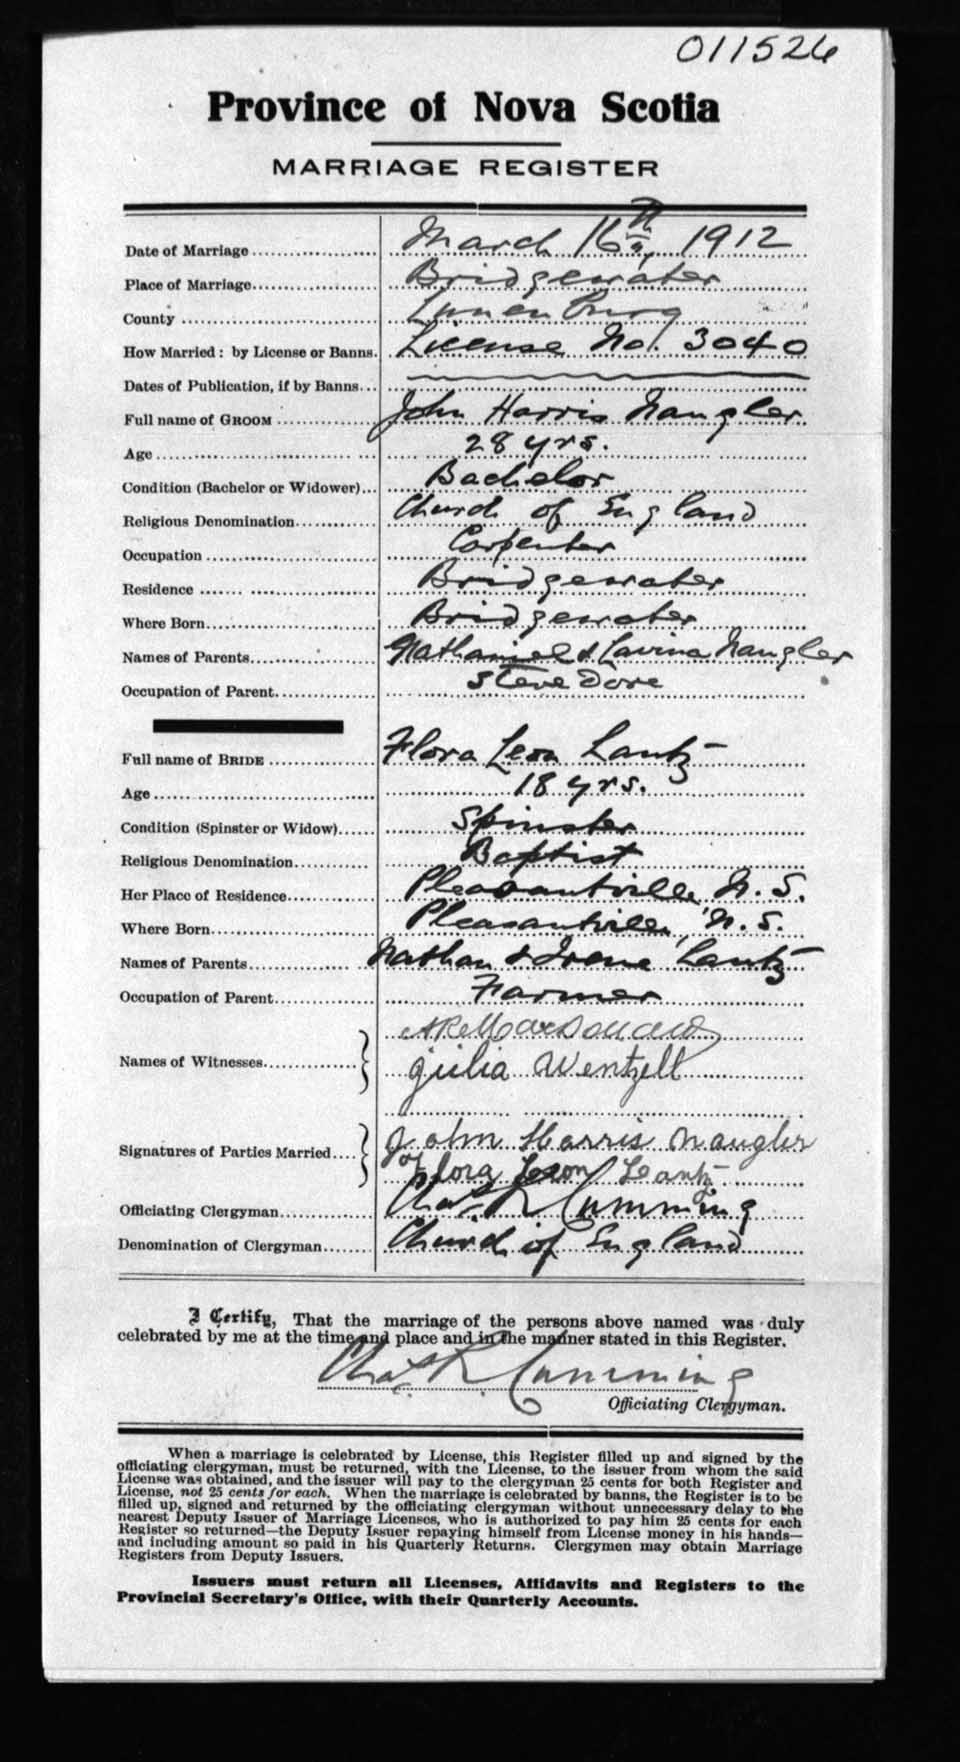 011526
Province of Nova Scotia
MARRIAGE REGISTER
Date of Marriage March 16th, 1912
Place of Marriage Bridgewater
County Lunenburg
How Married: by License or Banns. License No. 3040
Dates of Publication, if by Banns
Full name of GROOM John Harris Naugler
Age 28 yrs.
Condition (Bachelor or Widower) Bachelor
Religious Denomination Church of England
Occupation Carpenter
Residence Bridgewater
Where Born Bridgewater
Names of Parents Nathaniel & Lavina Naugler
Occupation of Parent Stevedore
Full name of BRIDE Flora Leon Lantz
Age 18 yrs.
Condition (Spinster or Widow) Spinster
Religious Denomination Baptist
Her Place of Residence Pleasantville, N. S.
Where Born Pleasantville, N. S.
Names of Parents Nathan & Irene Lantz
Occupation of Parent Farmer
Names of Witnesses
Julia Wentzell
Signatures of Parties Married John Harris Naugler
Flora Leon Lantz
Officiating Clergyman Chas. R. Cumming
Denomination of Clergyman Church of England
I Certify, That the marriage of the persons above named was duly
celebrated by me at the time and place and in the manner stated in this Register.
Chas. R. Cumming
Officiating Clergyman.
When a marriage is celebrated by License, this Register filled up and signed by the
officiating clergyman, must be returned, with the License, to the issuer from whom the said
License was obtained, and the issuer will pay to the clergyman 25 cents for both Register and
License, not 25 cents for each. When the marriage is celebrated by banns, the Register is to be
filled up, signed and returned by the officiating clergyman without unnecessary delay to the
nearest Deputy Issuer of Marriage Licenses, who is authorized to pay him 25 cents for each
Register so returned—the Deputy Issuer repaying himself from License money in his hands—
and including amount so paid in his Quarterly Returns. Clergymen may obtain Marriage
Registers from Deputy Issuers.
Issuers must return all Licenses, Affidavits and Registers to the
Provincial Secretary's Office, with their Quarterly Accounts.